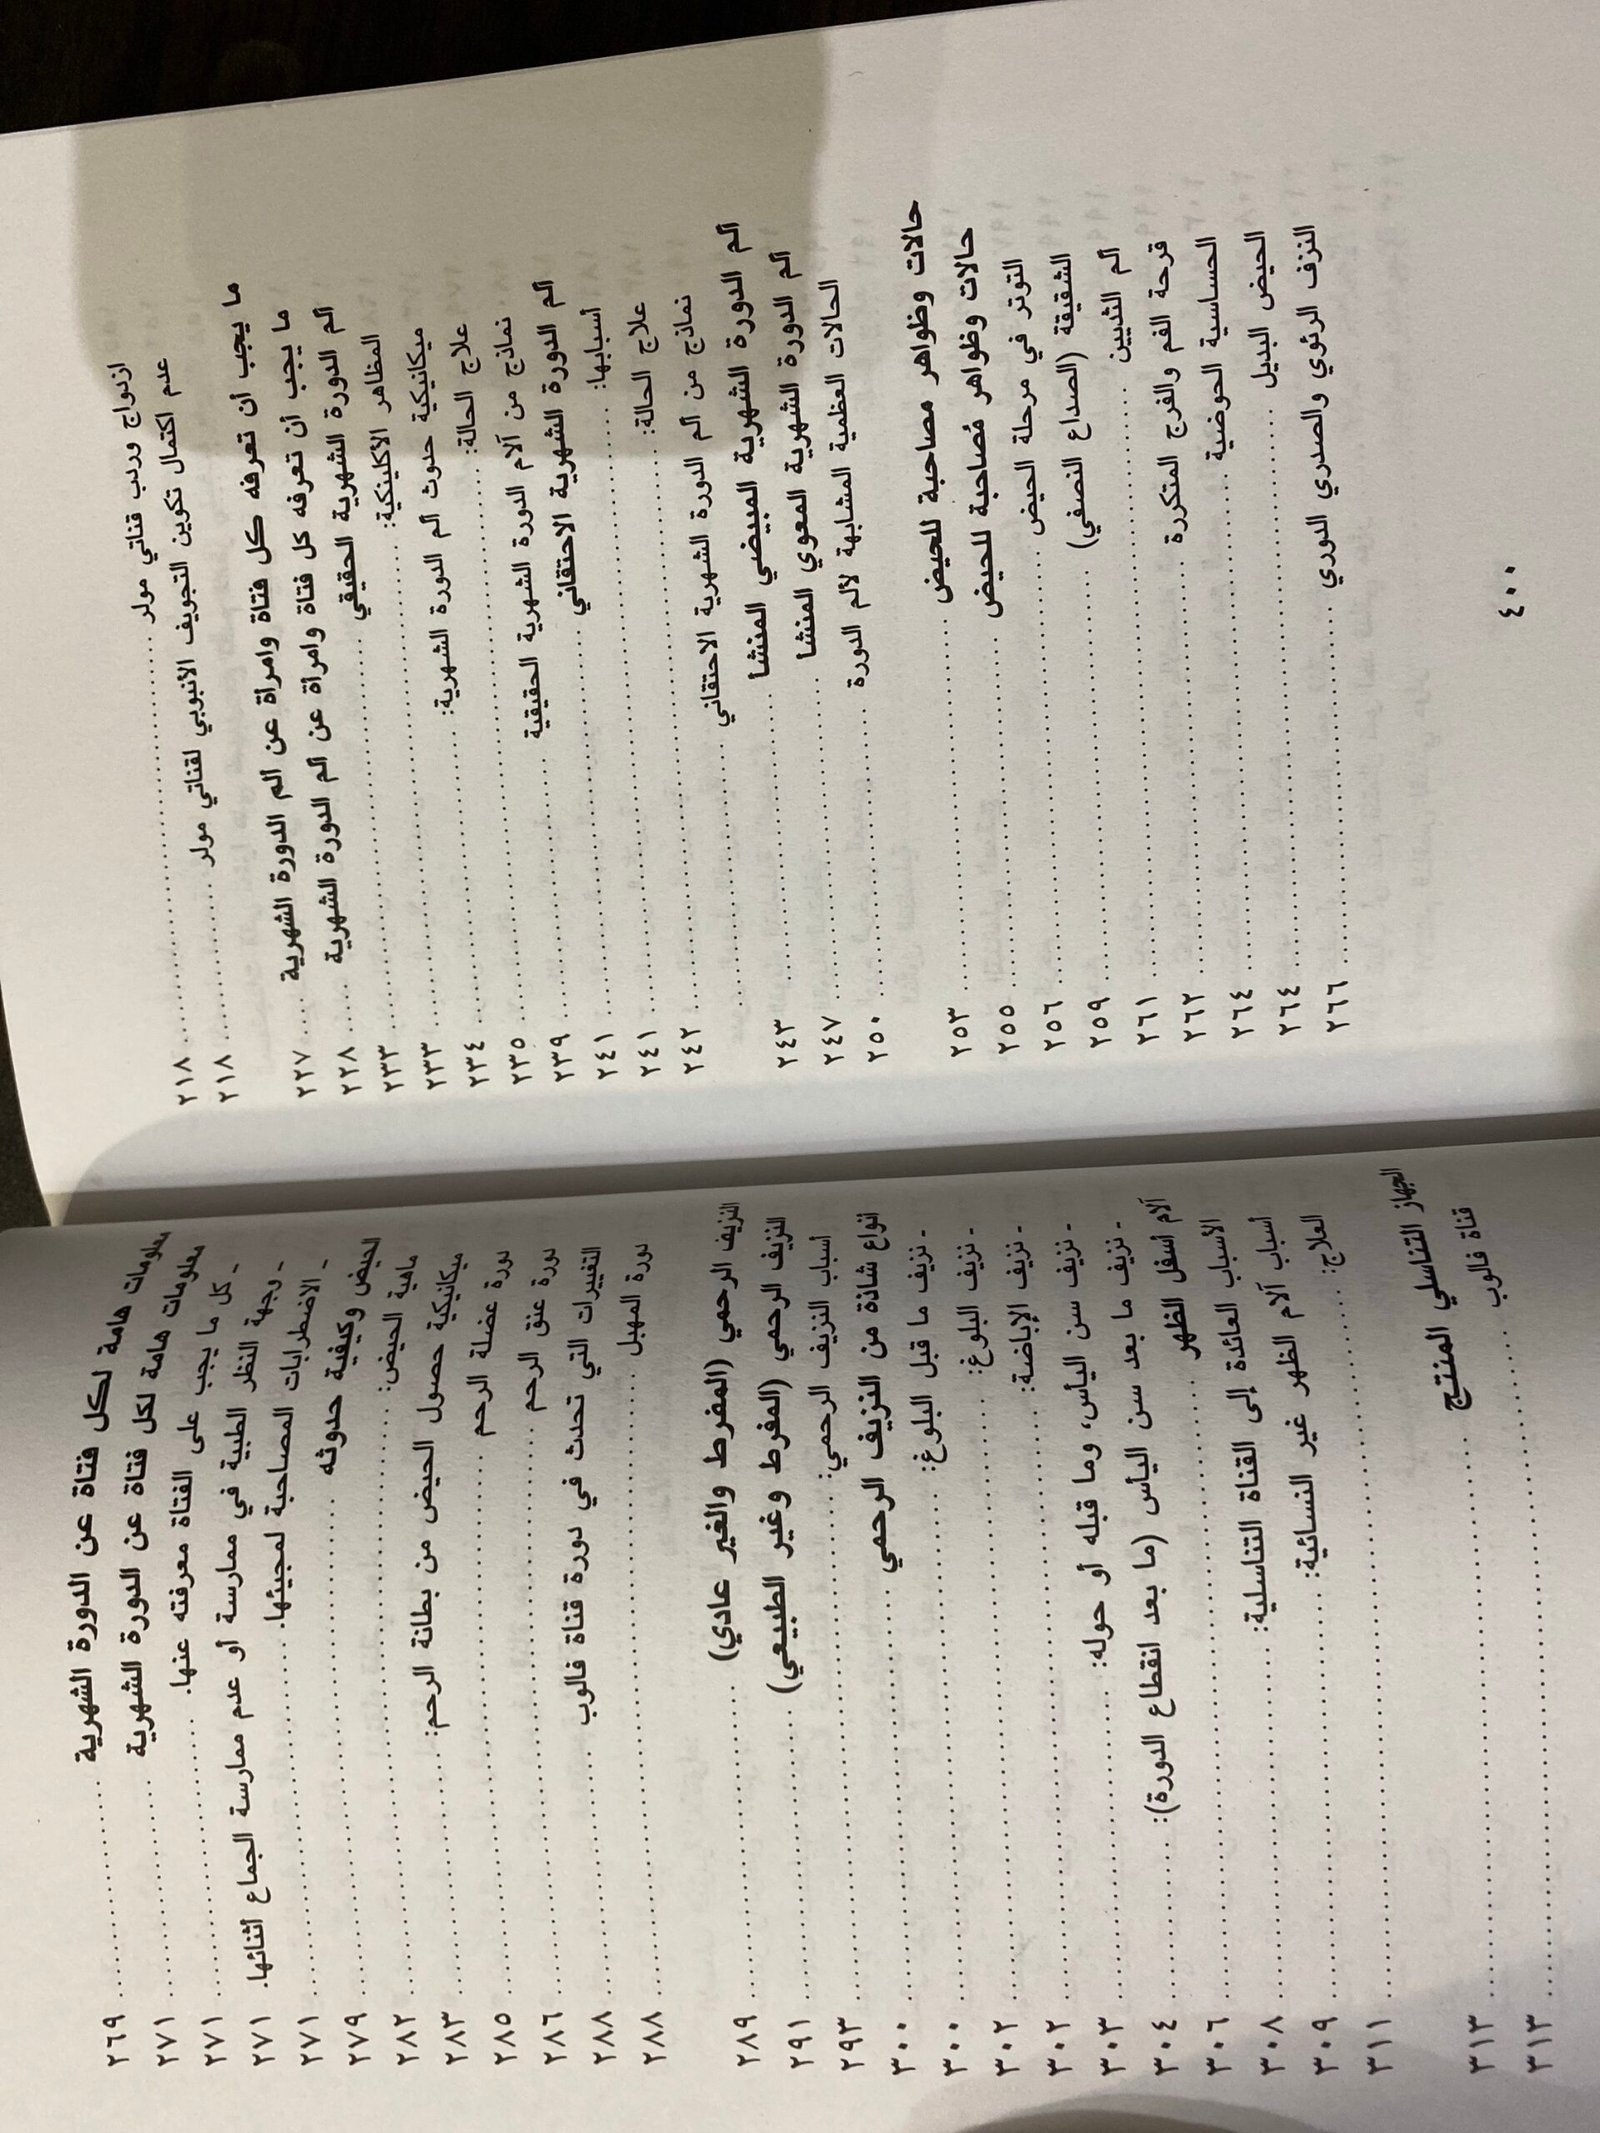 ازدواج وردب قناتي مولر ........ ٢١٨
عدم اكتمال تكوين التجويف الأنبوبي لقناتي مولر ........ ٢١٨
ما يجب أن تعرفه كل فتاة وامرأة عن الم الدورة الشهرية .... ٢٢٧
ما يجب أن تعرفه كل فتاة وامرأة عن ألم الدورة الشهرية ..... ٢٢٨
ألم الدورة الشهرية الحقيقي ........ ٢٣٣
المظاهر الأكلينكية: ........ ٢٣٣
ميكانيكية حدوث ألم الدورة الشهرية: ........ ٢٣٤
علاج الحالة: ........ ٢٣٥
نماذج من آلام الدورة الشهرية الحقيقية ........ ٢٣٩
ألم الدورة الشهرية الاحتقاني ........ ٢٤١
أسبابها: ........ ٢٤١
علاج الحالة: ........ ٢٤٢
نماذج من ألم الدورة الشهرية الاحتقاني ........
ألم الدورة الشهرية المبيضي المنشأ ........ ٢٤٣
ألم الدورة الشهرية المعوي المنشأ ........ ٢٤٧
الحالات العظمية المشابهة لألم الدورة ........ ٢٥٠
حالات وظواهر مصاحبة للحيض ........ ٢٥٣
حالات وظواهر مُصاحبة للحيض ........ ٢٥٥
التوتر في مرحلة الحيض ........ ٢٥٦
الشقيقة (الصداع النصفي) ........ ٢٥٩
ألم الثديين ........ ٢٦١
قرحة الفم والفرج المتكررة ........ ٢٦٢
الحساسية الحوضية ........ ٢٦٤
الحيض البديل ........ ٢٦٤
النزف الرئوي والصدري الدوري ........ ٢٦٦
٤٠٠
معلومات هامة لكل فتاة عن الدورة الشهرية ........ ٢٦٩
معلومات هامة لكل فتاة عن الدورة الشهرية ........ ٢٧١
- كل ما يجب على الفتاة معرفته عنها. ........ ٢٧١
- وجهة النظر الطبية في ممارسة أو عدم ممارسة الجماع أثنائها. ٢٧١
- الاضطرابات المصاحبة لمجيئها. ........ ٢٧١
الحيض وكيفية حدوثه ........ ٢٧٩
ماهية الحيض: ........ ٢٨٢
ميكانيكية حصول الحيض من بطانة الرحم: ........ ٢٨٣
دورة عضلة الرحم ........ ٢٨٥
دورة عنق الرحم ........ ٢٨٦
التغييرات التي تحدث في دورة قناة فالوب ........ ٢٨٨
دورة المهبل ........ ٢٨٨
النزيف الرحمي (المفرط والغير عادي) ........ ٢٨٩
النزيف الرحمي (المفرط وغير الطبيعي) ........ ٢٩١
أسباب النزيف الرحمي: ........ ٢٩٣
أنواع شاذة من النزيف الرحمي ........ ٣٠٠
- نزيف ما قبل البلوغ: ........ ٣٠٠
- نزيف البلوغ: ........ ٣٠٢
- نزيف الإباضة: ........ ٣٠٢
- نزيف سن اليأس، وما قبله أو حوله: ........ ٣٠٣
- نزيف ما بعد سن اليأس (ما بعد انقطاع الدورة): ........ ٣٠٤
آلام أسفل الظهر ........ ٣٠٦
الأسباب العائدة إلى القناة التناسلية: ........ ٣٠٨
أسباب آلام الظهر غير النسائية: ........ ٣٠٩
العلاج: ........ ٣١١
الجهاز التناسلي المنتج ........ ٣١٣
قناة فالوب ........ ٣١٣